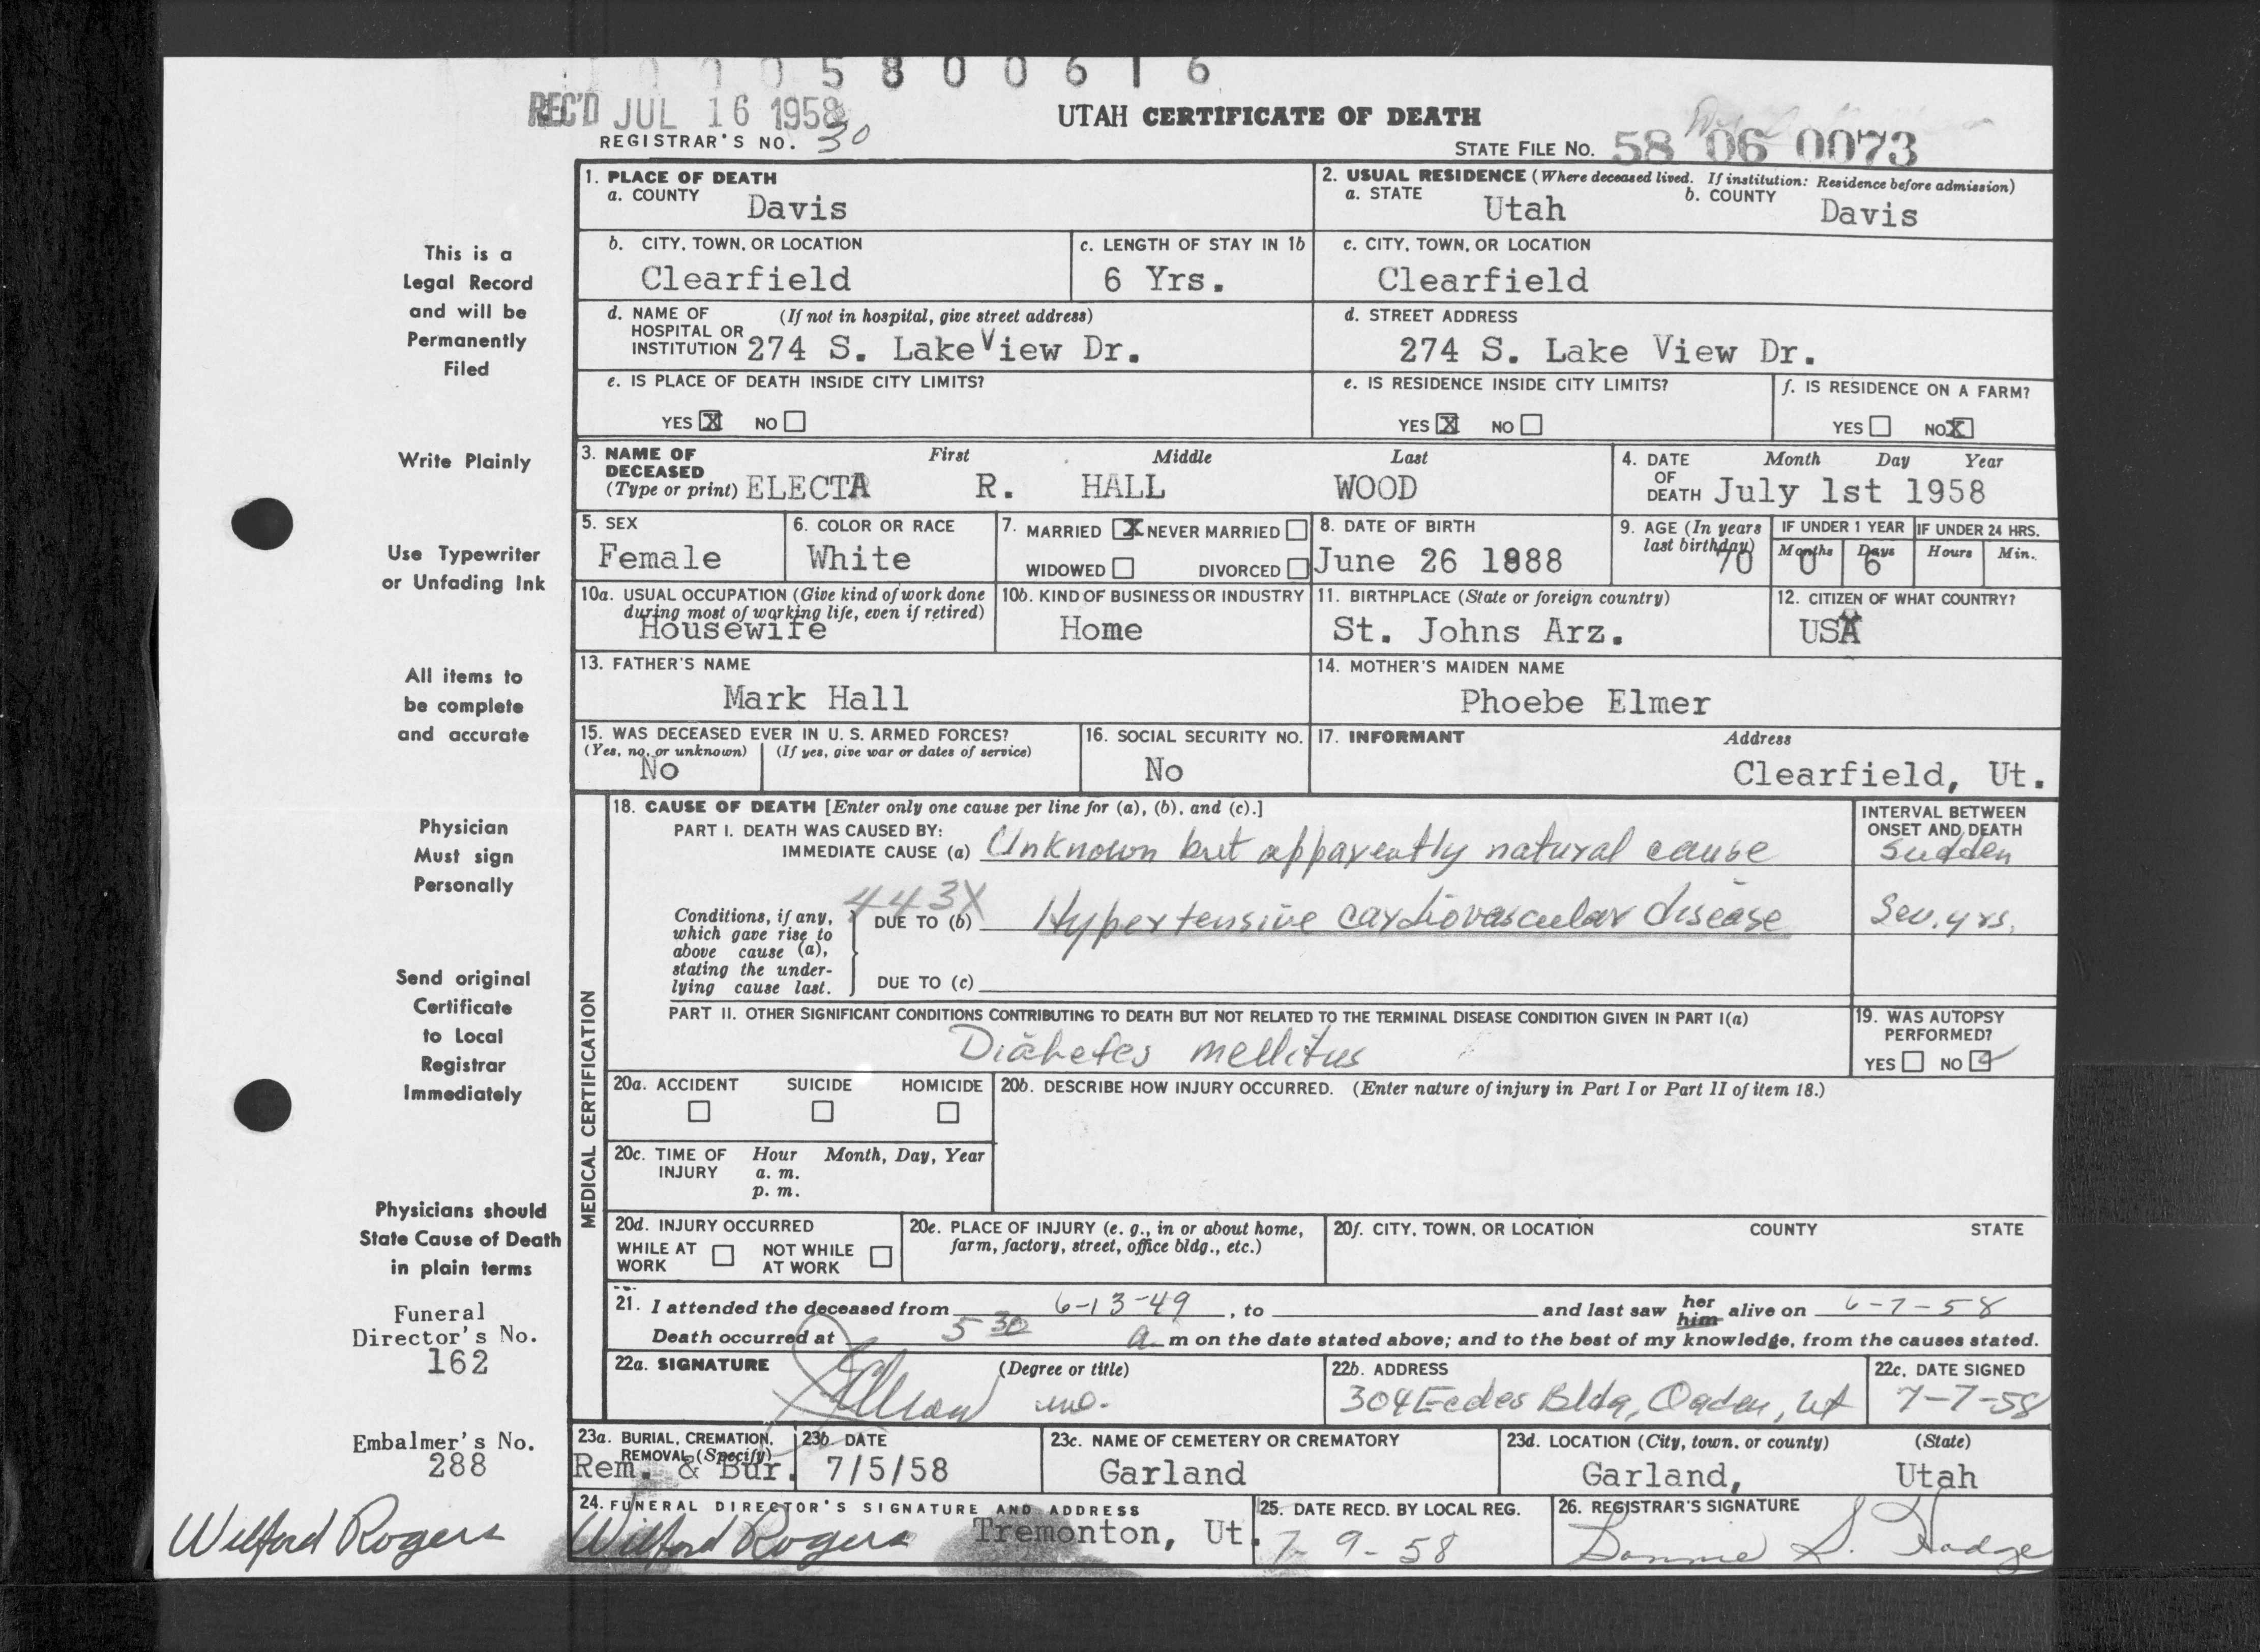 5 8 0 0 6 1 6
REC'D JUL 16 1958
UTAH CERTIFICATE OF DEATH
REGISTRAR'S NO. 30
STATE FILE NO. 58 06 0073
1. PLACE OF DEATH
a. COUNTY Davis
2. USUAL RESIDENCE (Where deceased lived. If institution: Residence before admission)
a. STATE Utah b. COUNTY Davis
b. CITY, TOWN, OR LOCATION Clearfield
c. LENGTH OF STAY IN 1b 6 Yrs.
c. CITY, TOWN, OR LOCATION Clearfield
d. NAME OF (If not in hospital, give street address)
HOSPITAL OR
INSTITUTION 274 S. LakeView Dr.
d. STREET ADDRESS
274 S. Lake View Dr.
e. IS PLACE OF DEATH INSIDE CITY LIMITS?
YES X NO
e. IS RESIDENCE INSIDE CITY LIMITS?
YES X NO
f. IS RESIDENCE ON A FARM?
YES NO X
3. NAME OF DECEASED (Type or print) First Middle Last
ELECTA R. HALL WOOD
4. DATE OF DEATH Month Day Year
July 1st 1958
5. SEX
Female
6. COLOR OR RACE
White
7. MARRIED X NEVER MARRIED
WIDOWED DIVORCED
8. DATE OF BIRTH
June 26 1888
9. AGE (In years last birthday) 70
IF UNDER 1 YEAR Months 0 Days 6
IF UNDER 24 HRS. Hours Min.
10a. USUAL OCCUPATION (Give kind of work done during most of working life, even if retired)
Housewife
10b. KIND OF BUSINESS OR INDUSTRY
Home
11. BIRTHPLACE (State or foreign country)
St. Johns Arz.
12. CITIZEN OF WHAT COUNTRY?
USA
13. FATHER'S NAME
Mark Hall
14. MOTHER'S MAIDEN NAME
Phoebe Elmer
15. WAS DECEASED EVER IN U. S. ARMED FORCES?
(Yes, no, or unknown) (If yes, give war or dates of service)
No
16. SOCIAL SECURITY NO.
No
17. INFORMANT Address
Clearfield, Ut.
MEDICAL CERTIFICATION
18. CAUSE OF DEATH [Enter only one cause per line for (a), (b), and (c).]
INTERVAL BETWEEN ONSET AND DEATH
PART I. DEATH WAS CAUSED BY:
IMMEDIATE CAUSE (a) Unknown but apparently natural cause Sudden
443X
Conditions, if any, which gave rise to above cause (a), stating the underlying cause last.
DUE TO (b) Hypertensive cardiovascular disease Sev. yrs.
DUE TO (c)
PART II. OTHER SIGNIFICANT CONDITIONS CONTRIBUTING TO DEATH BUT NOT RELATED TO THE TERMINAL DISEASE CONDITION GIVEN IN PART I(a)
Diabetes mellitus
19. WAS AUTOPSY PERFORMED?
YES NO
20a. ACCIDENT SUICIDE HOMICIDE
20b. DESCRIBE HOW INJURY OCCURRED. (Enter nature of injury in Part I or Part II of item 18.)
20c. TIME OF INJURY Hour Month, Day, Year
a. m.
p. m.
20d. INJURY OCCURRED
WHILE AT WORK NOT WHILE AT WORK
20e. PLACE OF INJURY (e. g., in or about home, farm, factory, street, office bldg., etc.)
20f. CITY, TOWN, OR LOCATION COUNTY STATE
21. I attended the deceased from 6-13-49, to and last saw her him alive on 6-7-58
Death occurred at 5 30 a m on the date stated above; and to the best of my knowledge, from the causes stated.
22a. SIGNATURE (Degree or title)
22b. ADDRESS
304 Eccles Bldg, Ogden, Ut
22c. DATE SIGNED
7-7-58
23a. BURIAL, CREMATION, REMOVAL (Specify)
Rem. & Bur.
23b. DATE
7/5/58
23c. NAME OF CEMETERY OR CREMATORY
Garland
23d. LOCATION (City, town, or county) (State)
Garland, Utah
24. FUNERAL DIRECTOR'S SIGNATURE AND ADDRESS
Wilford Rogers Tremonton, Ut.
25. DATE RECD. BY LOCAL REG.
7-9-58
26. REGISTRAR'S SIGNATURE
Bonnie S. Hodge
This is a
Legal Record
and will be
Permanently
Filed
Write Plainly
Use Typewriter
or Unfading Ink
All items to
be complete
and accurate
Physician
Must sign
Personally
Send original
Certificate
to Local
Registrar
Immediately
Physicians should
State Cause of Death
in plain terms
Funeral
Director's No.
162
Embalmer's No.
288
Wilford Rogers